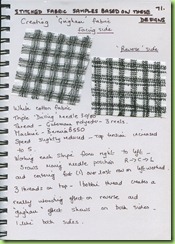 STITCHED FABRIC SAMPLES BASED ON THESE 71.
DESIGNS
Creating 'Gingham' Fabric
Facing side
'Reverse' side
White cotton fabric
Triple Darning needle
Thread = Gutermann polyester - 3 reels.
Machine = Bernina
Speed slightly reduced - Top tension increased
to 5
Working each stripe from right to left -
3 rows using needle position R→C→L
and entering for (1) are last row on left-wished
3 threads on top - 1 bottom thread creates a
really interesting effect on reverse and
gingham effect shows on both sides.
I like both sides.